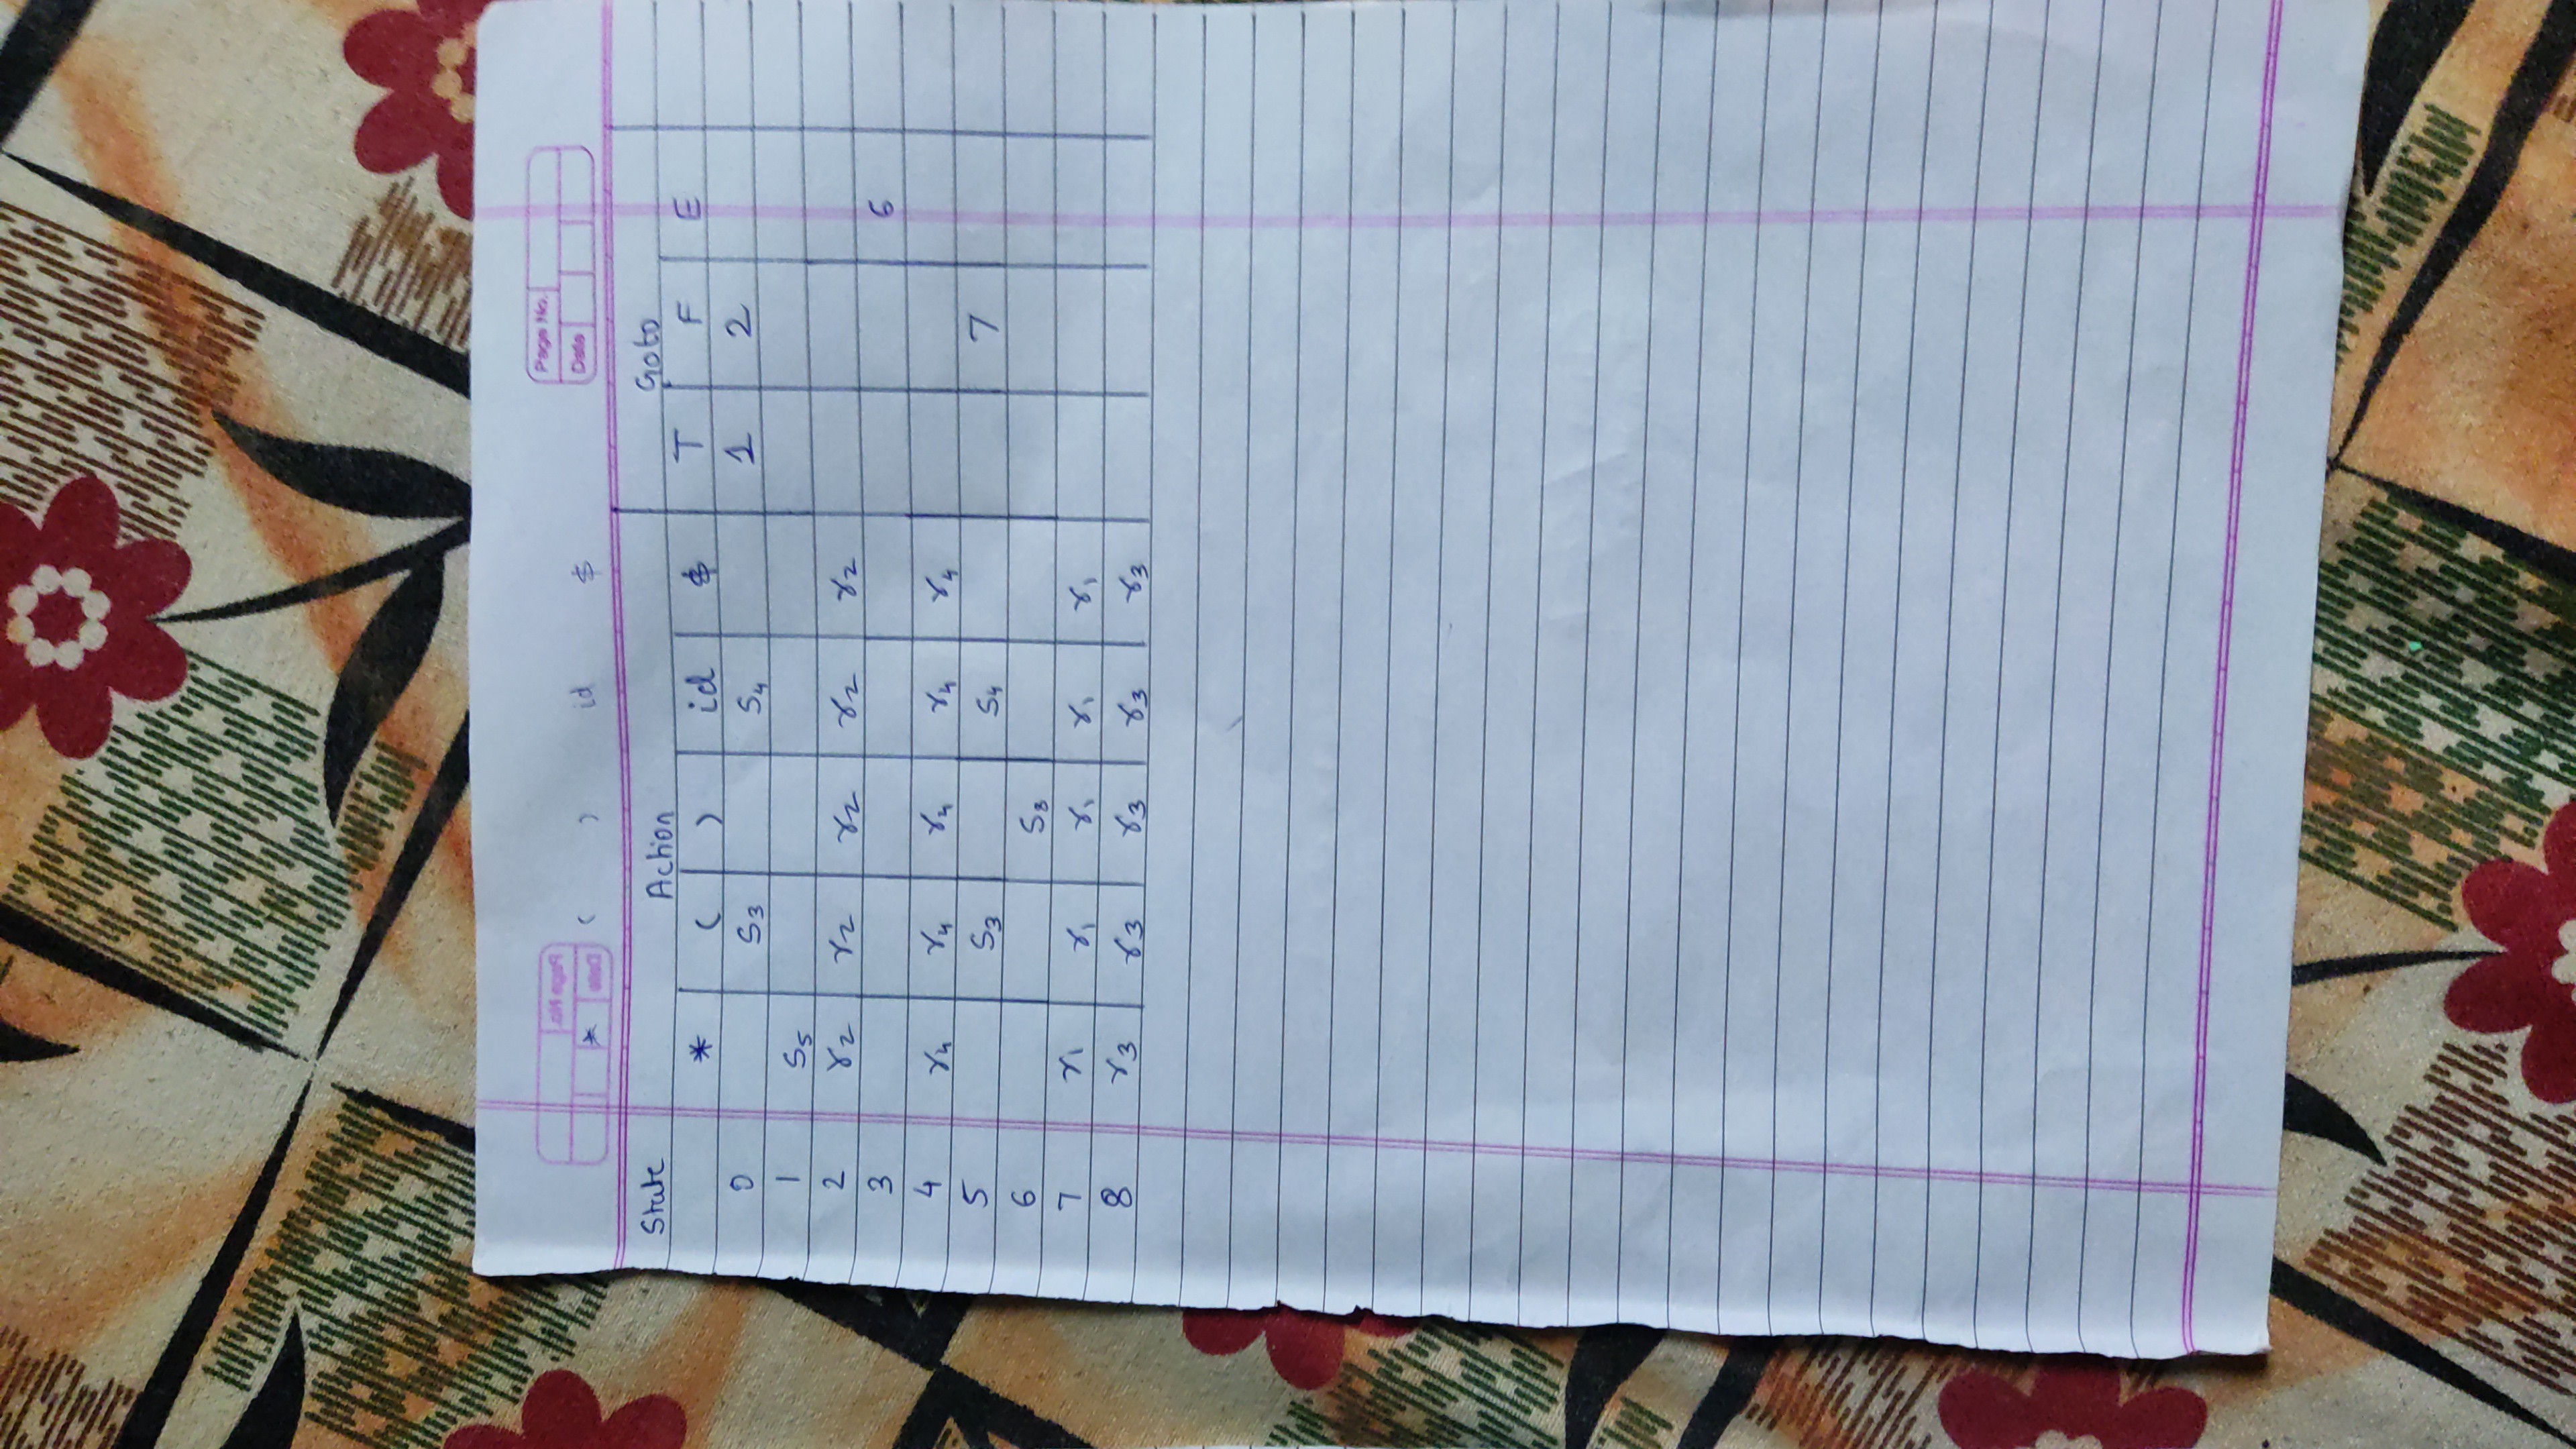 Page No.
Date
Page No.
Date
* ( ) id $
State Action Goto
* ( ) id $ T F E
0 S3 S4 1 2
1 S5
2 r2 r2 r2 r2 r2
3 6
4 r4 r4 r4 r4 r4
5 S3 S4 7
6 S8
7 r1 r1 r1 r1 r1
8 r3 r3 r3 r3 r3